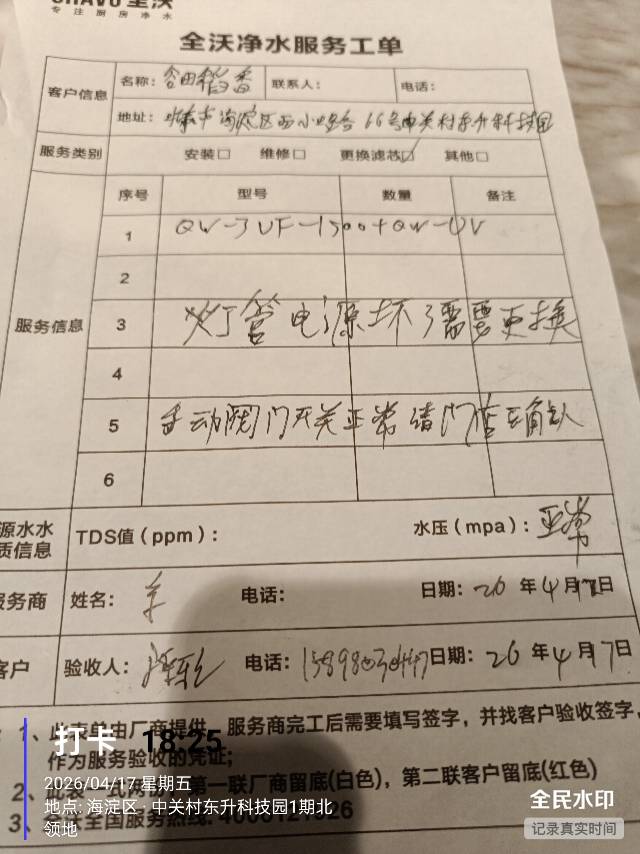 专注厨房净水
全沃净水服务工单
客户信息
名称：谷田稻香 联系人： 电话：
地址： 海淀区西小口路66号中关村东升科技园
服务类别 安装□ 维修□ 更换滤芯☑ 其他□
序号 型号 数量 备注
服务信息
1 QW-3UF-1500+QW-UV
2
3 灯管电源坏了需要更换
4
5 手动阀门开关正常请门店王确认
6
源水水质信息 TDS值（ppm）： 水压（mpa）：正常
服务商 姓名： 电话： 日期：26年4月17日
客户 验收人： 电话： 日期：26年4月17日
1、此表单由厂商提供，服务商完工后需要填写签字，并找客户验收签字，
作为服务验收的凭证；
2、此表一式两联，第一联厂商留底(白色)，第二联客户留底(红色)
3、
全国服务热线:
打卡 18:25
2026/04/17 星期五
地点: 海淀区 · 中关村东升科技园1期北
领地
全民水印
记录真实时间